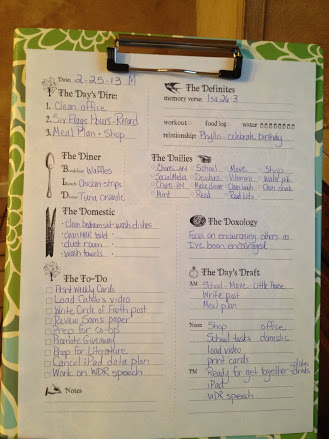 Date: 2-25-13 M
The Day's Dire:
1. Clean office
2. Six Flags Hours - Record
3. Meal Plan + Shop
The Definites
memory verse: Isa 26:3
workout food log water
relationship: Phyllis - celebrate Birthday
The Diner
Breakfast Waffles
Lunch Chicken strips
Dinner Tuna
The Dailies
Chores AM School Move Shop
Social Media Devotions Vitamins Water
Chores PM Make dinner
Mint Read
The Domestic
clean bedroom set
wash dishes
dust room
wash towels
The Doxology
Focus on encouraging others as
I've been encouraged.
The To-Do
Print Weekly Cards
Load Caleb's video
Write Circle of Faith post
Review Sam's paper
Prep for co-op
Promote Giveaway
Prep for Literature
Cancel iPad data plan
Work on WDR speech
Notes
The Day's Draft
AM School - Move Little Pause
Write post
Meal plan
Noon Shop office
School tasks domestic
load video
print cards
PM Ready for get together
iPad
WDR speech